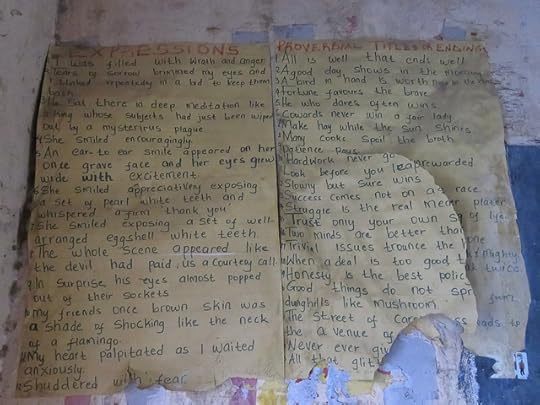 EXPRESSIONS
I was filled with Wrath and anger
Tears of sorrow brimmed my eyes and
I blinked repeatedly in a bid to keep them
back
He sat there in deep meditation like
a king whose subjects had just been wiped
out by a mysterious plague
She smiled encouragingly.
An ear-to ear smile appeared on her
once grave face and her eyes grew
wide with excitement
She smiled appreciatively exposing
a set of pearl white teeth and
whispered a thank you
She smiled exposing a set of well-
arranged eggshell white teeth.
The whole scene appeared like
the devil had paid us a courtesy call.
In surprise his eyes almost popped
out of their sockets
my friends once brown skin was
a shade of shocking like the neck
of a flamingo.
My heart palpitated as I waited
anxiously.
shuddered with fear
PROVERBIAL TITLES OR ENDINGS
All is well that ends well
A good day shows in the morning
A bird in hand is worth two in the
fortune favours the brave
He who dares often wins
Cowards never win a fair lady
Make hay while the Sun Shines
Many cooks Spoil the broth
Patience pays
Hardwork never go rewarded
Look before you leap
Slowly but Sure wins
Success comes not on a race
Struggle is the real mean of life
Trust only your own
Two minds are better than one
Trivial issues trounce the mighty
When a deal is too good twice
Honesty is the best polic
Good things do not spr
dunghills like mushroom
The Street of leads to
the avenue of
Never ever giv
All that glit